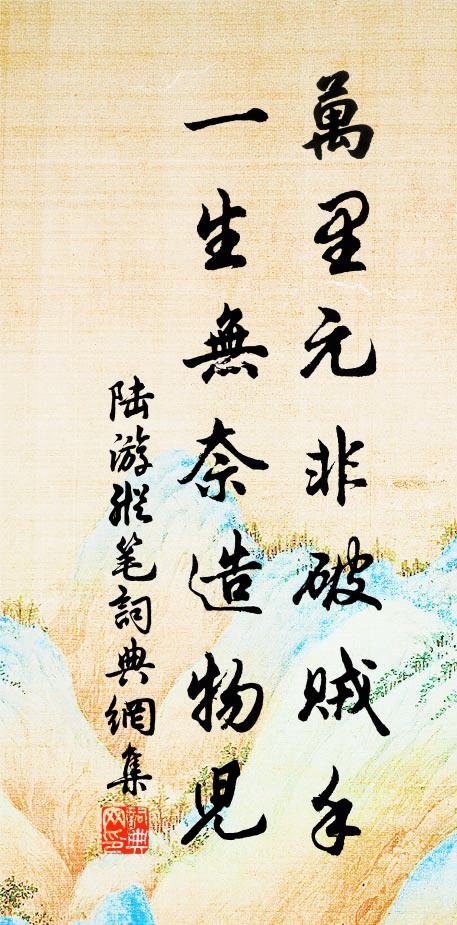 萬里元非破賊手
一生無奈造物兒
陸游縱笔詞典網集
詞典
网印